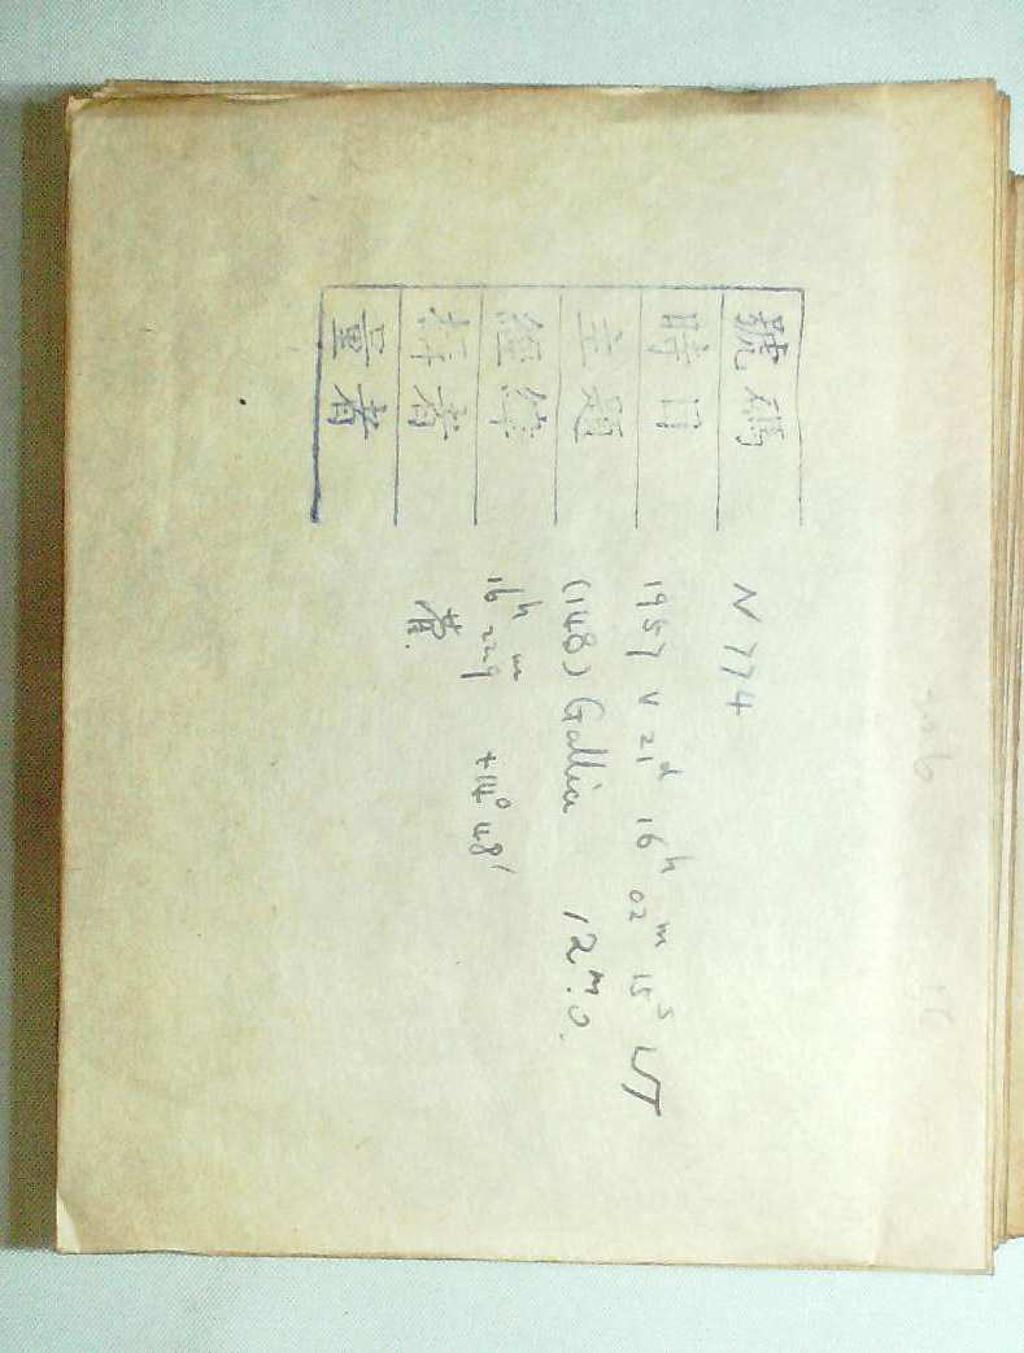 號碼 N 774
時日 1957 V 21ᵈ 16ʰ 02ᵐ 15ˢ UT
主題 (148) Gallia 12ᵐ.0
經緯 16ʰ 22ᵐ9 +14° 48′
者 黄
量者